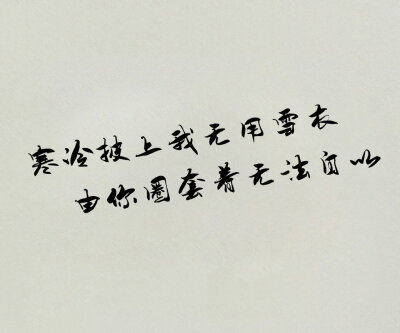 寒冷披上我无用雪衣
由你圈套着无法自以